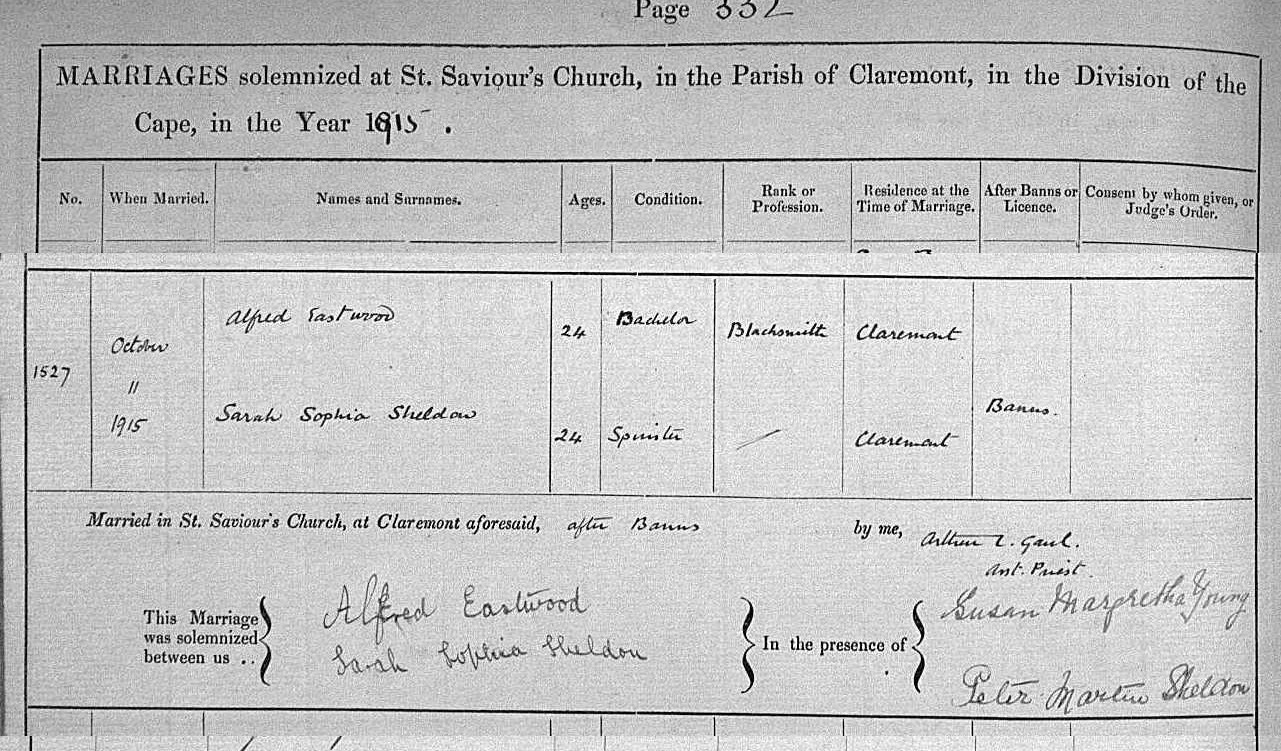 Page 332
MARRIAGES solemnized at St. Saviour's Church, in the Parish of Claremont, in the Division of the
Cape, in the Year 1915.
No. When Married. Names and Surnames. Ages. Condition. Rank or Profession. Residence at the Time of Marriage. After Banns or Licence. Consent by whom given, or Judge's Order.
Alfred Eastwood 24 Bachelor Blacksmith Claremont
1527 October 11 1915 Banns.
Sarah Sophia Sheldon 24 Spinster / Claremont
Married in St. Saviour's Church, at Claremont aforesaid, after Banns by me, Arthur L. Gaul.
Asst. Priest.
This Marriage was solemnized between us .. Alfred Eastwood In the presence of Susan Margretha Young
Sarah Sophia Sheldon Peter Martin Sheldon